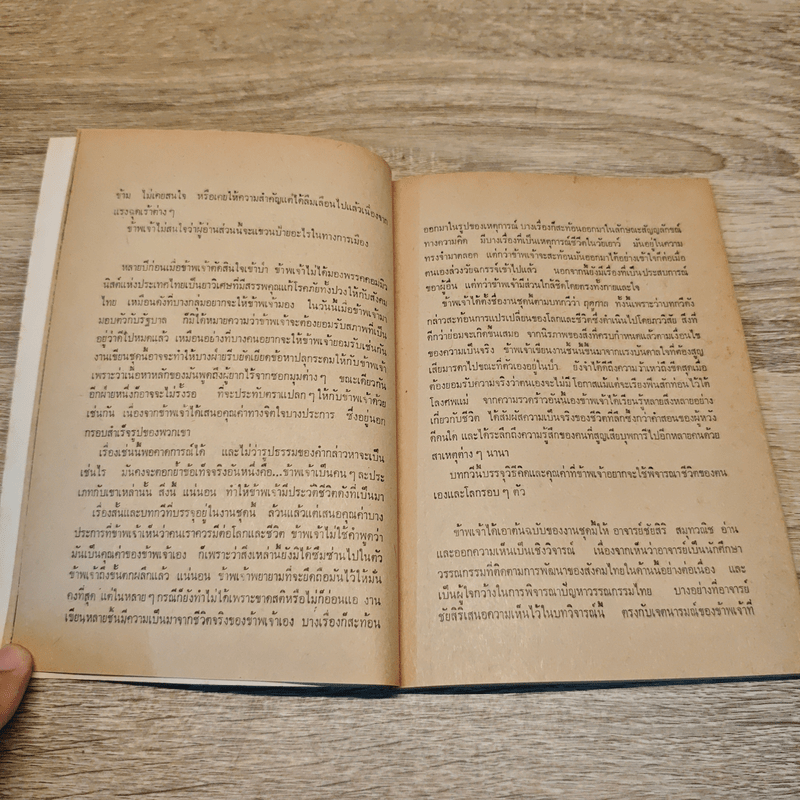 ข้าม ไม่เคยสนใจ หรือเคยให้ความสำคัญแต่ได้ลืมเลือนไปแล้วเนื่องจาก
แรงฉุดเร้าต่าง ๆ
ข้าพเจ้าไม่สนใจว่าผู้อ่านส่วนนี้จะแขวนป้ายอะไรในทางการเมือง
หลายปีก่อนเมื่อข้าพเจ้าตัดสินใจเข้าป่า ข้าพเจ้าไม่ได้มองพรรคคอมมิว
นิสต์แห่งประเทศไทยเป็นยาวิเศษที่มีสรรพคุณแก้โรคภัยทั้งปวงให้กับสังคม
ไทย เหมือนดังที่บางกลุ่มอยากจะให้ข้าพเจ้ามอง ในวันนี้เมื่อข้าพเจ้ามา
มอบตัวกับรัฐบาล ก็มิได้หมายความว่าข้าพเจ้าจะต้องยอมรับสภาพที่เป็น
อยู่ว่าดีไปหมดแล้ว เหมือนอย่างที่บางคนอยากจะให้ข้าพเจ้ายอมรับเช่นกัน
งานเขียนชุดนี้อาจจะทำให้บางฝ่ายรีบยัดเยียดข้อหาปลุกระดมให้กับข้าพเจ้า
เพราะว่าเนื้อหาหลักของมันพูดถึงผู้ยากไร้จากซอกมุมต่าง ๆ ขณะเดียวกัน
อีกฝ่ายหนึ่งก็อาจจะไม่รั้งรอ ที่จะประทับตราแปลก ๆ ให้กับข้าพเจ้าด้วย
เช่นกัน เนื่องจากข้าพเจ้าได้เสนอคุณค่าทางจิตใจบางประการ ซึ่งอยู่นอก
กรอบสำเร็จรูปของพวกเขา
เรื่องเช่นนี้พอคาดการณ์ได้ และไม่ว่ารูปธรรมของคำกล่าวหาจะเป็น
เช่นไร มันคงจะตอกย้ำข้อเท็จจริงอันหนึ่งคือ...ข้าพเจ้าเป็นคนๆ ละประ
เภทกับเขาเหล่านั้น สิ่งนี้ แน่นอน ทำให้ข้าพเจ้ามีประวัติชีวิตดังที่เป็นมา
เรื่องสั้นและบทกวีที่บรรจุอยู่ในงานชุดนี้ ล้วนแล้วแต่เสนอคุณค่าบาง
ประการที่ข้าพเจ้าเห็นว่าคนเราควรมีต่อโลกและชีวิต ข้าพเจ้าไม่ใช้คำพูดว่า
มันเป็นคุณค่าของข้าพเจ้าเอง ก็เพราะว่าสิ่งเหล่านี้ยังมิได้ซึมซ่านไปในตัว
ข้าพเจ้าถึงขั้นตกผลึกแล้ว แน่นอน ข้าพเจ้าพยายามที่จะยึดถือมันไว้ให้มั่น
คงที่สุด แต่ในหลาย ๆ กรณีก็ยังทำไม่ได้เพราะขาดสติหรือไม่ก็อ่อนแอ งาน
เขียนหลายชิ้นมีความเป็นมาจากชีวิตจริงของข้าพเจ้าเอง บางเรื่องก็สะท้อน
ออกมาในรูปของเหตุการณ์ บางเรื่องก็สะท้อนออกมาในลักษณะสัญญลักษณ์
ทางความคิด มีบางเรื่องที่เป็นเหตุการณ์ชีวิตในวัยเยาว์ มันอยู่ในความ
ทรงจำมาตลอด แต่กว่าข้าพเจ้าจะสะท้อนมันออกมาได้อย่างเข้าใจก็ต่อเมื่อ
ตนเองล่วงวัยฉกรรจ์เข้าไปแล้ว นอกจากนี้ยังมีเรื่องที่เป็นประสบการณ์
ของผู้อื่น แต่ทว่าข้าพเจ้ามีส่วนใกล้ชิดโดยตรงทั้งกายและใจ
ข้าพเจ้าได้ตั้งชื่องานชุดนี้ตามบทกวีว่า ฤดูกาล ทั้งนี้เพราะว่าบทกวีดัง
กล่าวสะท้อนการแปรเปลี่ยนของโลกและชีวิตซึ่งดำเนินไปโดยภววิสัย สิ่งที่
ดีกว่าย่อมจะเกิดขึ้นเสมอ จากนิรภาพของสิ่งที่ครบกำหนดแล้วตามเงื่อนไข
ของความเป็นจริง ข้าพเจ้าเขียนงานชิ้นนี้ขึ้นมาจากแรงบันดาลใจที่ต้องสูญ
เสียมารดาไปขณะที่ตัวเองอยู่ในป่า ยังจำได้ถึงความว้าเหว่ถึงขีดสุดเมื่อ
ต้องยอมรับความจริงว่าตนเองจะไม่มีโอกาสแม้แต่จะเรื่องพันสักท่อนไว้ใต้
โลงศพแม่ จากความรวดร้าวอันนี้เองข้าพเจ้าได้เรียนรู้หลายสิ่งหลายอย่าง
เกี่ยวกับชีวิต ได้สัมผัสความเป็นจริงของชีวิตที่ลึกซึ้งกว่าคำสอนของผู้หวัง
ดีคนใด และได้ระลึกถึงความรู้สึกของคนที่สูญเสียบุพการีไปอีกหลายคนด้วย
สาเหตุต่าง ๆ นานา
บทกวีนี้บรรจุวิธีคิดและคุณค่าที่ข้าพเจ้าอยากจะใช้พิจารณาชีวิตของตน
เองและโลกรอบ ๆ ตัว
ข้าพเจ้าได้เอาต้นฉบับของงานชุดนี้ให้ อาจารย์ชัยสิริ สมุทวณิช อ่าน
และออกความเห็นเป็นเชิงวิจารณ์ เนื่องจากเห็นว่าอาจารย์เป็นนักศึกษา
วรรณกรรมที่ติดตามการพัฒนาของสังคมไทยในด้านนี้อย่างต่อเนื่อง และ
เป็นผู้ใจกว้างในการพิจารณาปัญหาวรรณกรรมไทย บางอย่างที่อาจารย์
ชัยสิริเสนอความเห็นไว้ในบทวิจารณ์นี้ ตรงกับเจตนารมณ์ของข้าพเจ้าที่